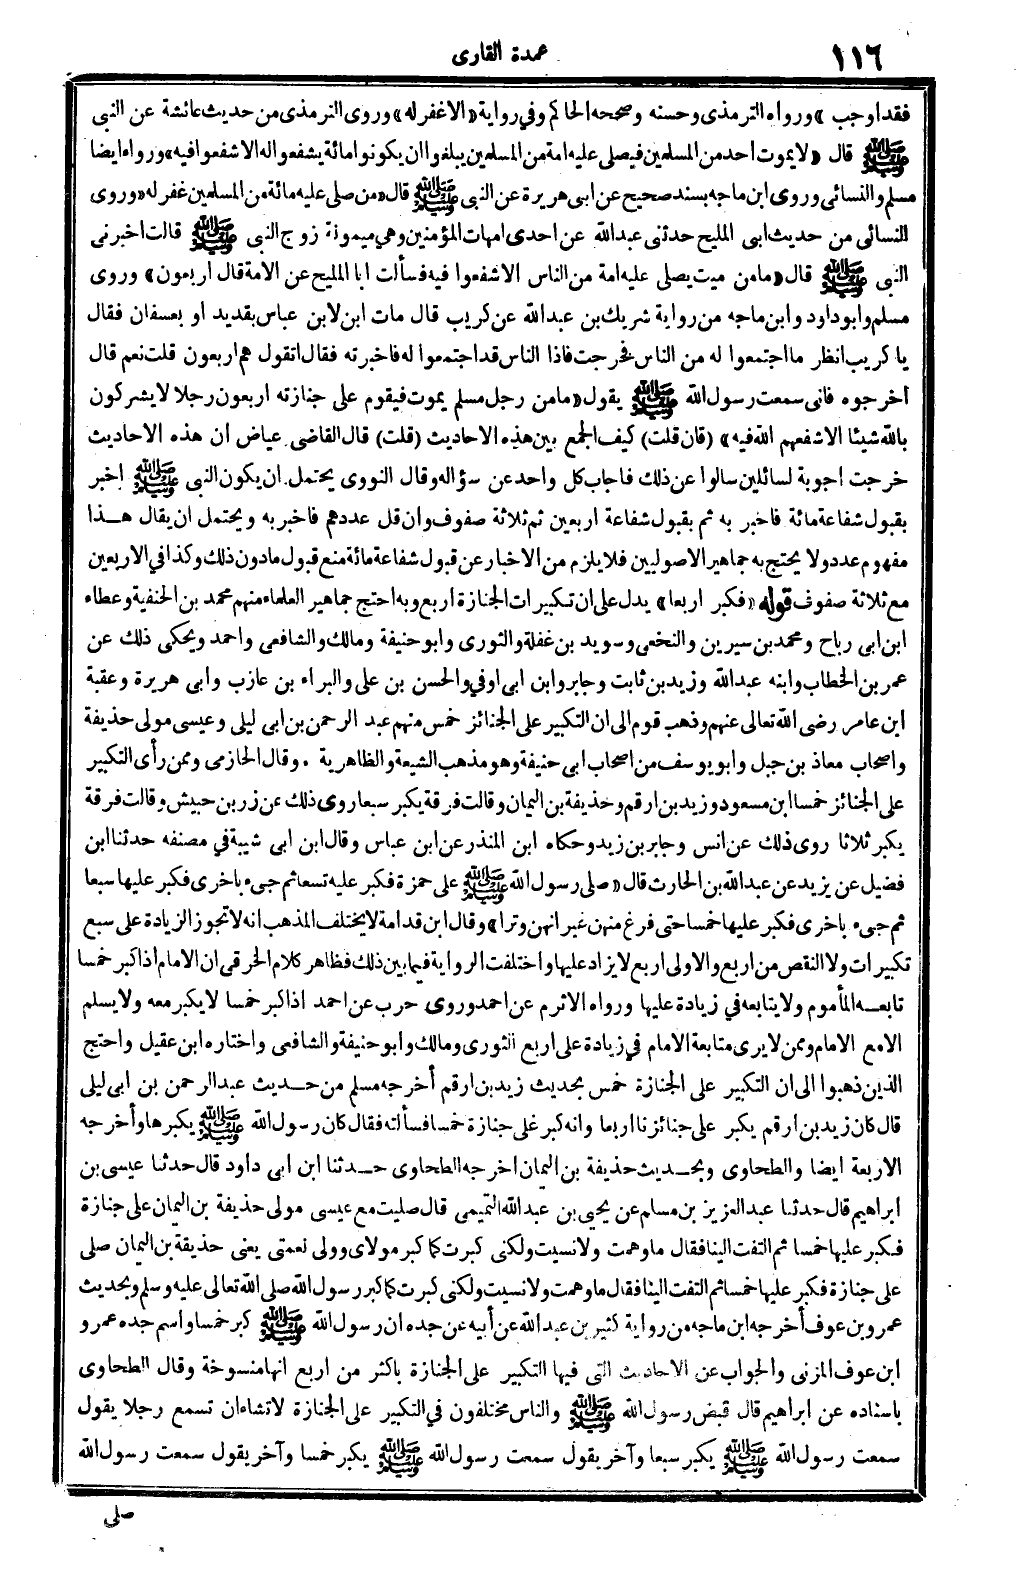 ١١٦
عمدة القارى
فقد اوجب » ورواه الترمذى وحسنه وصححه الحاكم وفي رواية « الاغفر له » وروى الترمذى من حديث عائشة عن النبى
ﷺ قال « لا يموت احد من المسلمين فيصلى عليه امة من المسلمين يبلغوا ان يكونوا مائة يشفعوا له الا شفعوا فيه » ورواه ايضا
مسلم والنسائى وروى ابن ماجه بسند صحيح عن ابى هريرة عن النبى ﷺ قال « من صلى عليه مائة من المسلمين غفر له « وروى
النسائى من حديث ابى المليح حدثنى عبدالله عن احدى امهات المؤمنين وهي ميمونة زوج النبى ﷺ قالت اخبرنى
النبى ﷺ قال « ما من ميت يصلى عليه امة من الناس الا شفعوا فيه فسألت ابا المليح عن الامة قال اربعون » وروى
مسلم وابو داود وابن ماجه من رواية شريك بن عبدالله عن كريب قال مات ابن لابن عباس بقديد او بعسفان فقال
يا كريب انظر ما اجتمعوا له من الناس فخرجت فاذا الناس قد اجتمعوا له فاخبرته فقال اتقول هم اربعون قلت نعم قال
أخرجوه فانى سمعت رسول الله ﷺ يقول « ما من رجل مسلم يموت فيقوم على جنازته اربعون رجلا لا يشركون
بالله شيئا الا شفعهم الله فيه » (فان قلت) كيف الجمع بين هذه الاحاديث (قلت) قال القاضى عياض ان هذه الاحاديث
خرجت أجوبة لسائلين سالوا عن ذلك فاجاب كل واحد عن سؤاله وقال النووى يحتمل ان يكون النبى ﷺ إخبر
بقبول شفاعة مائة فاخبر به ثم بقبول شفاعة اربعين ثم ثلاثة صفوف وان قل عددهم فاخبر به ويحتمل ان يقال هذا
مفهوم عدد ولا يحتج به جماهير الاصوليين فلا يلزم من الاخبار عن قبول شفاعة مائة منع قبول مادون ذلك وكذا في الاربعين
مع ثلاثة صفوف قوله « فكبر اربعا » يدل على ان تكبيرات الجنازة اربع وبه احتج جماهير العلماء منهم محمد بن الحنفية وعطاء
ابن ابى رباح ومحمد بن سيرين والنخعى وسويد بن غفلة والثورى وابو حنيفة ومالك والشافعى واحمد ويحكى ذلك عن
عمر بن الخطاب وابنه عبدالله وزيد بن ثابت وجابر وابن ابى اوفي والحسن بن على والبراء بن عازب وابى هريرة وعقبة
ابن عامر رضى الله تعالى عنهم وذهب قوم الى ان التكبير على الجنائز خمس منهم عبد الرحمن بن ابى ليلى وعيسى مولى حذيفة
واصحاب معاذ بن جبل وابو يوسف من اصحاب ابى حنيفة وهو مذهب الشيعة والظاهرية . وقال الحازمى وممن رأى التكبير
على الجنائز خمسا ابن مسعود وزيد بن ارقم وحذيفة بن اليمان وقالت فرقة يكبر سبعا روى ذلك عن زر بن حبيش وقالت فرقة
يكبر ثلاثا روى ذلك عن انس وجابر بن زيد وحكاه ابن المنذر عن ابن عباس وقال ابن ابى شيبة في مصنفه حدثنا ابن
فضيل عن يزيد عن عبدالله بن الحارث قال « صلى رسول الله ﷺ على حمزة فكبر عليه تسعا ثم جىء باخرى فكبر عليها سبعا
ثم جىء باخرى فكبر عليها خمسا حتى فرغ منهن غير انهن وترا » وقال ابن قدامة لا يختلف المذهب انه لا تجوز الزيادة على سبع
تكبيرات ولا النقص من اربع والاولى اربع لا يزاد عليها واختلفت الرواية فيما بين ذلك فظاهر كلام الخرقى ان الامام اذا كبر خمسا
تابعه المأموم ولا يتابعه في زيادة عليها ورواه الاثرم عن احمد وروى حرب عن احمد اذا كبر خمسا لا يكبر معه ولا يسلم
الا مع الامام وممن لا يرى متابعة الامام في زيادة على اربع الثورى ومالك وابو حنيفة والشافعى واختاره ابن عقيل واحتج
الذين ذهبوا الى ان التكبير على الجنازة خمس بحديث زيد بن ارقم أخرجه مسلم من حديث عبد الرحمن بن ابى ليلى
قال كان زيد بن ارقم يكبر على جنائزنا اربعا وانه كبر على جنازة خمسا فسألته فقال كان رسول الله ﷺ يكبرها وأخرجه
الاربعة ايضا والطحاوى وبحديث حذيفة بن اليمان اخرجه الطحاوى حدثنا ابن ابى داود قال حدثنا عيسى بن
ابراهيم قال حدثنا عبد العزيز بن مسلم عن يحيى بن عبدالله التميمى قال صليت مع عيسى مولى حذيفة بن اليمان على جنازة
فكبر عليها خمسا ثم التفت الينا فقال ما وهمت ولا نسيت ولكنى كبرت كما كبر مولاى وولى نعمتى يعنى حذيفة بن اليمان صلى
على جنازة فكبر عليها خمسا ثم التفت الينا فقال ما وهمت ولا نسيت ولكنى كبرت كما كبر رسول الله صلى الله تعالى عليه وسلم وبحديث
عمرو بن عوف أخرجه ابن ماجه من رواية كثير بن عبدالله عن أبيه عن جده ان رسول الله ﷺ كبر خمسا واسم جده عمرو
ابن عوف المزنى والجواب عن الاحاديث التى فيها التكبير على الجنازة باكثر من اربع انها منسوخة وقال الطحاوى
باسناده عن ابراهيم قال قبض رسول الله ﷺ والناس مختلفون في التكبير على الجنازة لا تشاء ان تسمع رجلا يقول
سمعت رسول الله ﷺ يكبر سبعا وآخر يقول سمعت رسول الله ﷺ يكبر خمسا وآخر يقول سمعت رسول الله
صلى